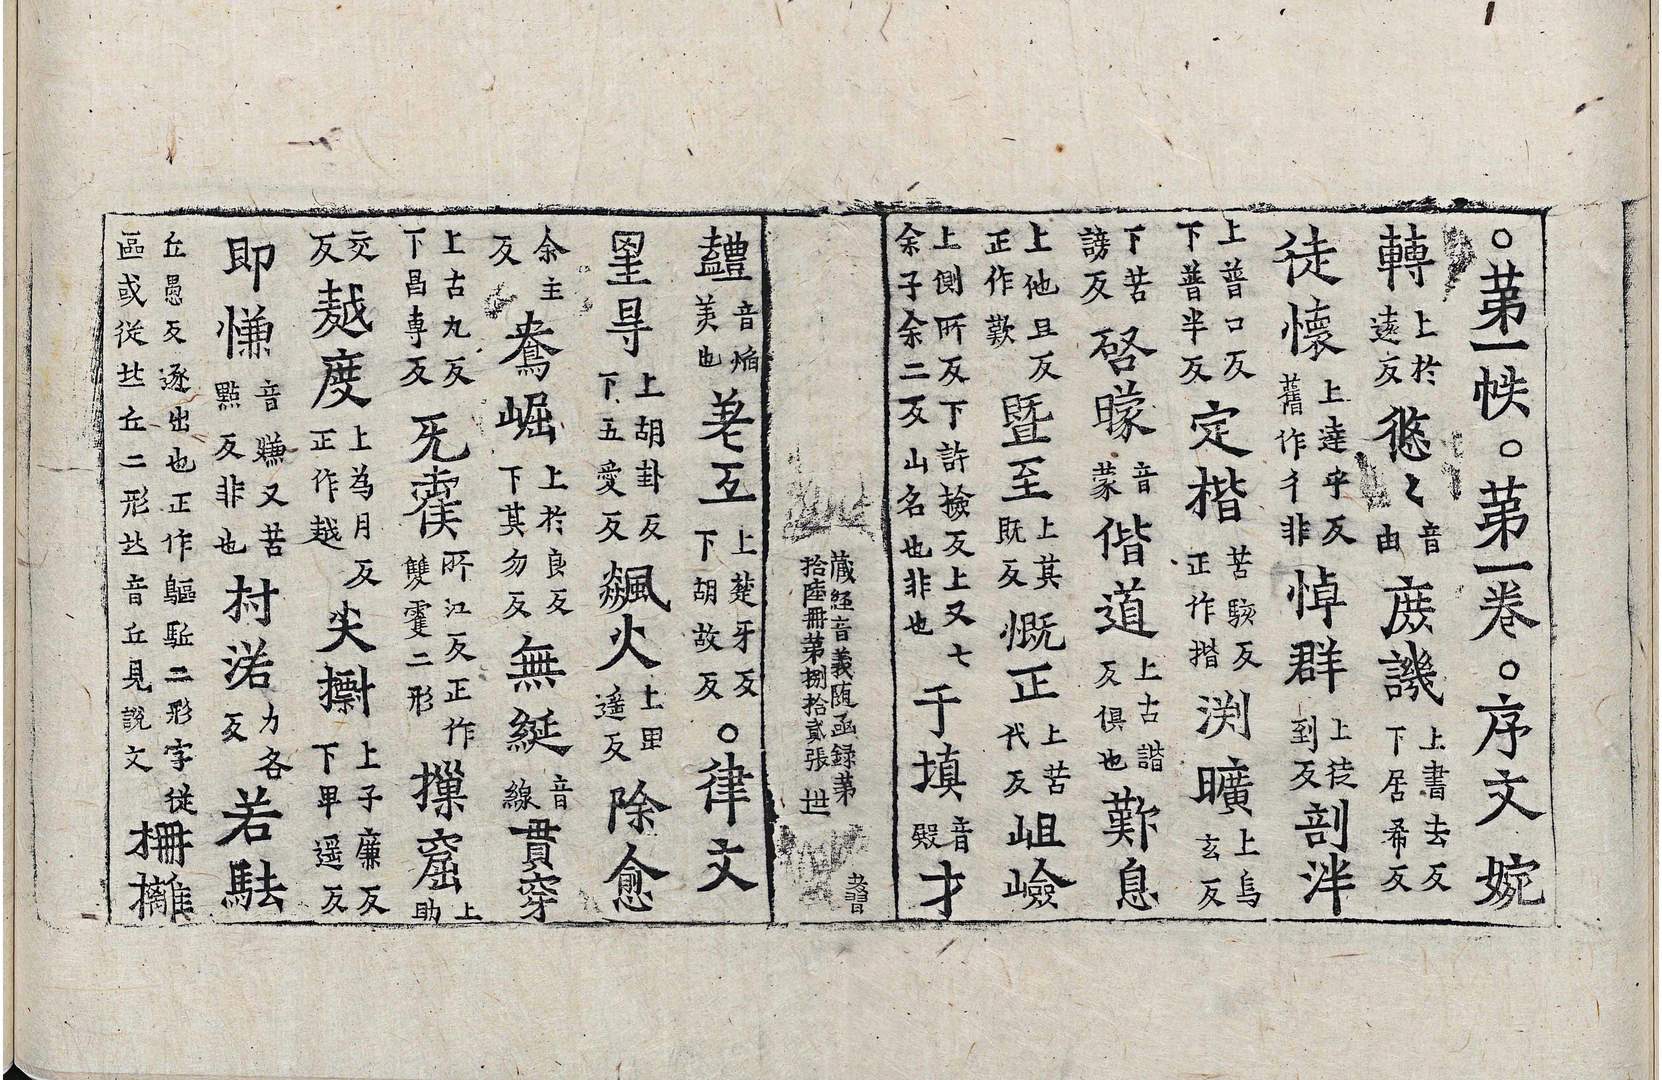 ○苐一帙○苐一卷○序文婉
轉上於遠反 㥽〻音由 庻譏上書去反下居希反
徒懷上達乎反舊作彳非 悼群上徒到反 剖泮
上普口反下普半反 定楷苦駭反正作揩 渕曠上烏玄反
下苦謗反 啓矇音蒙 偕道上古諧反俱也 歎息
上他旦反正作歎 暨至上其既反 慨正上苦代反 岨嶮
上側所反下許撿反上又七余子余二反山名也非也 于填音殿 才
藏經音義随函録苐
拾陸冊苐捌拾貳張 世
䪜音焰美也 差互上楚牙反下胡故反 ○律文
罣㝵上胡卦反下五愛反 飊火上必遥反 除愈
余主反 鴦崛上於良反下其勿反 無綖音線 貫穿
上古九反下昌專反 旡䨥所江反正作雙䨥二形 摷窟上助
交反 越度上為月反正作越 尖㯿上子廉反下甲遥反
即慊音賺又苦點反非也 村渃力各反 若駈
丘愚反逐出也正作駈二形字從
區或從丠丘二形丠音丘見說文 柵攡